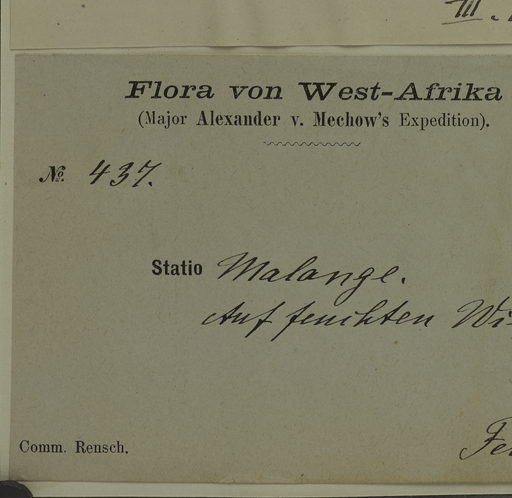 III.
Flora von West-Afrika
(Major Alexander v. Mechow's Expedition).
No. 437.
Statio Malange.
Auf feuchten Wi
Comm. Rensch.